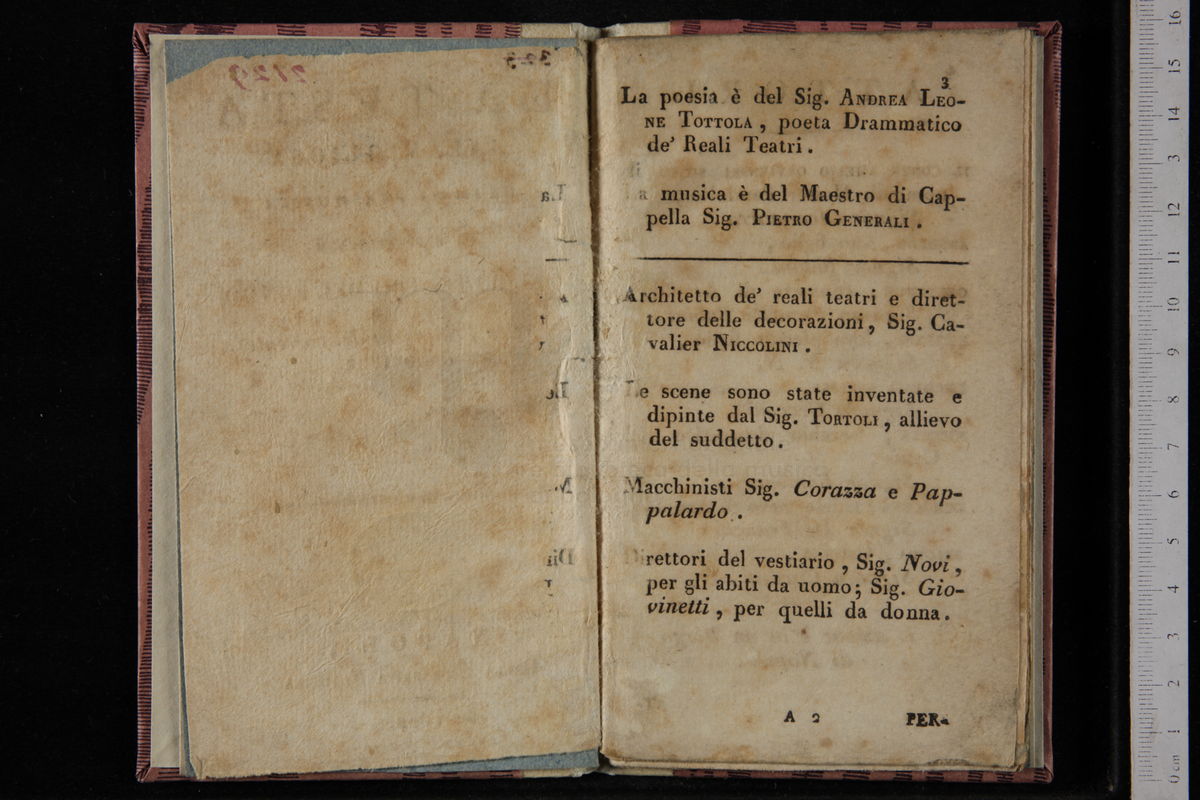 3
La poesia è del Sig. ANDREA LEO-
NE TOTTOLA, poeta Drammatico
de' Reali Teatri.
La musica è del Maestro di Cap-
pella Sig. PIETRO GENERALI.
Architetto de' reali teatri e diret-
tore delle decorazioni, Sig. Ca-
valier NICCOLINI.
Le scene sono state inventate e
dipinte dal Sig. TORTOLI, allievo
del suddetto.
Macchinisti Sig. Corazza e Pap-
palardo.
Direttori del vestiario, Sig. Novi,
per gli abiti da uomo; Sig. Gio-
vinetti, per quelli da donna.
A 2 PER-
0 cm 1 2 3 4 5 6 7 8 9 10 11 12 3 14 15 16